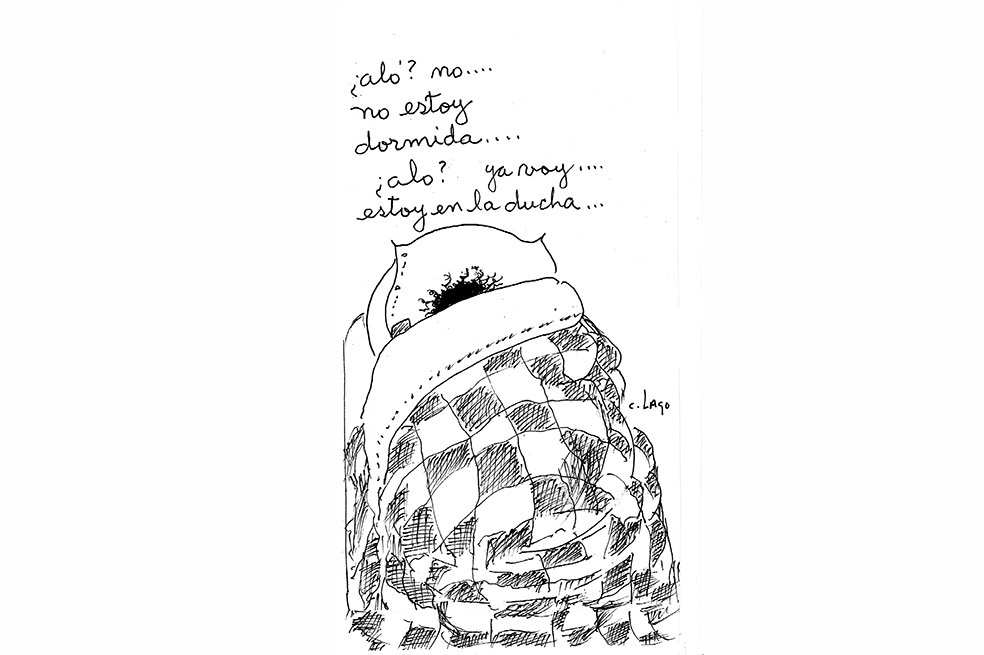 ¿aló? no....
no estoy
dormida....
¿alo? ya voy....
estoy en la ducha...
C. LAgo